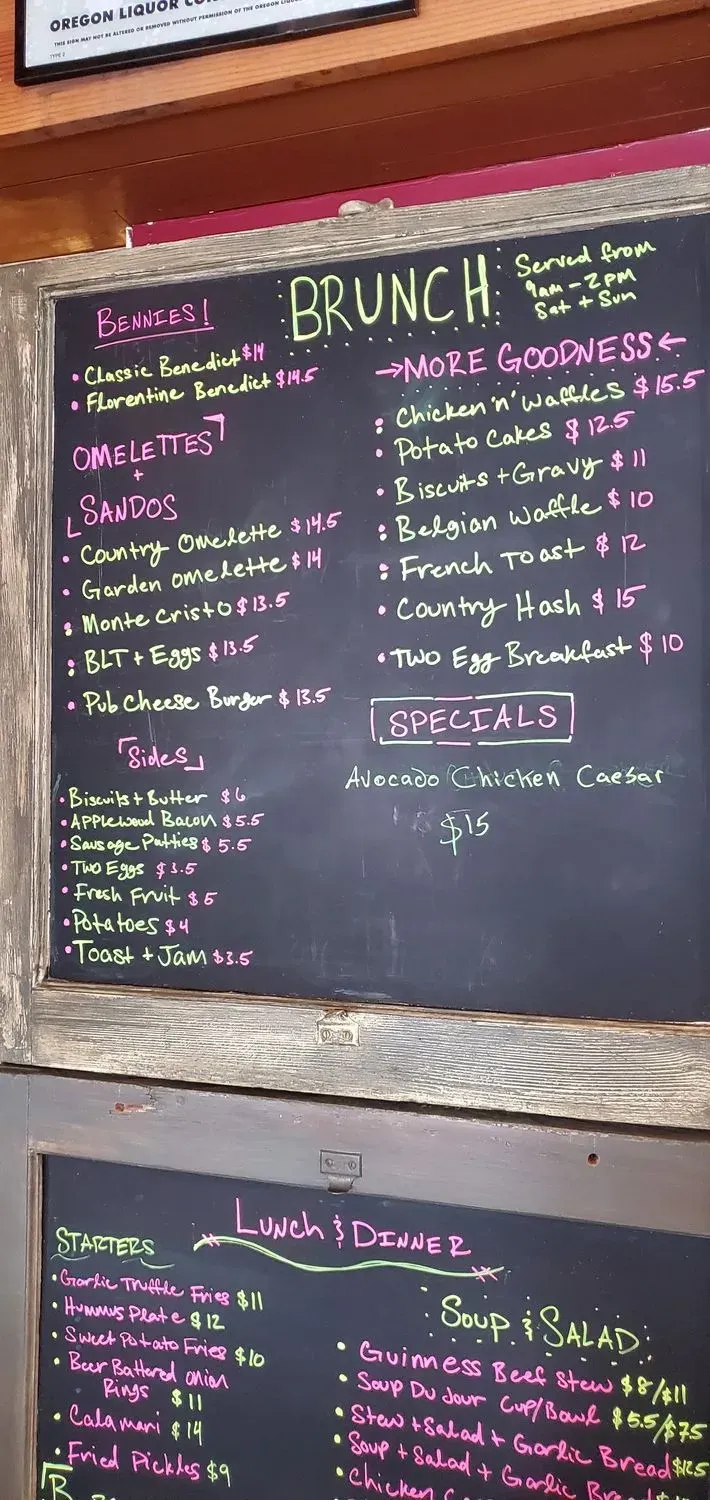 OREGON LIQUOR
THIS SIGN MAY NOT BE ALTERED OR REMOVED WITHOUT PERMISSION OF THE OREGON
TYPE 2
BRUNCH
Served from
9am - 2pm
Sat + Sun
BENNIES!
• Classic Benedict $14
• Florentine Benedict $14.5
OMELETTES
+
SANDOS
• Country Omelette $14.5
• Garden omelette $14
• Monte Cristo $13.5
• BLT + Eggs $13.5
• Pub Cheese Burger $13.5
Sides
• Biscuits + Butter $6
• Applewood Bacon $5.5
• Sausage Patties $5.5
• Two Eggs $3.5
• Fresh Fruit $5
• Potatoes $4
• Toast + Jam $3.5
→MORE GOODNESS←
• Chicken 'n' Waffles $15.5
• Potato Cakes $12.5
• Biscuits + Gravy $11
• Belgian Waffle $10
• French Toast $12
• Country Hash $15
• Two Egg Breakfast $10
SPECIALS
Avocado Chicken Caesar
$15
Lunch & DINNER
STARTERS
• Garlic Truffle Fries $11
• Hummus Plate $12
• Sweet Potato Fries $10
• Beer Battered onion
Rings $11
• Calamari $14
• Fried Pickles $9
B
Soup & SALAD
• Guinness Beef Stew $8/$11
• Soup Du Jour Cup/Bowl $5.5/$7.5
• Stew + Salad + Garlic Bread $12.5
• Soup + Salad + Garlic Bread
• Chicken